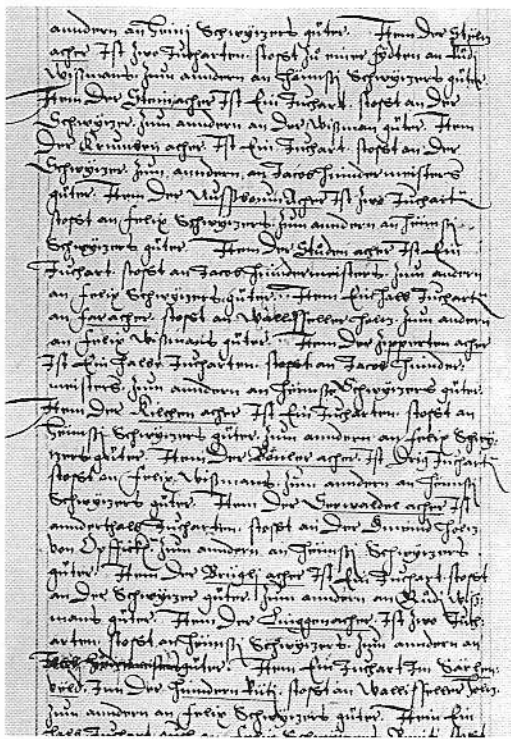 anndern an Heini Schwyzers güter. Item der Steln
acher Ist zwo Jucharten. stosst zů einer sydten an Růdi
Wissmans. zum anndern an Heinsti Schwyzers güter.
Item der Steinacher Ist Ein Juchart. stosst an der
Schwyzer. zum anndern an der Wissman güter. Item
der Krummen acher. Ist Ein Juchart. stosst an der
Schwyzer. zum anndern, an Jacob Hindermeisters
güter. Item der Nussboum Acher Ist zwo Juchart
stosst an Felix Schwyzers. zum anndern an Heinsti
Schwyzers güter. Item der Studen acher Ist Ein
Juchart. stosst an Jacob Hindermeisters. zum andern
an Felix Schwyzers güter. Item Ein halb Juchart
an Faracher. stosst an Wallisseller holtz. zum andern
an Felix Wissmans güter. Item der Zipperten acher
Ist Ein halbe Jucharten. stosst an Jacob Hinder
meisters. zum anndern an Heinsti Schwyzers güter.
Item der Kilchen acher Ist Ein Jucharten. stosst an
Heinsti Schwyzers güter. zum anndern an Felix Schwy
zers güter. Item der Böxler acher. Ist Dryg Juchart
stosst an Felix Wissmans. zum anndern an Heinsti
Schwyzers güter. Item der Verwaldel acher Ist
annderthalb Jucharten. stosst an der Gmeind holtz
von Opffickh. zum anndern, an Heinsti Schwyzers
güter. Item der Brügli acher Ist Ein Juchart. stosst
an der Schwyzer güter. zum anndern an Rüdi Wiss
mans güter. Item der Luggenacher. Ist zwo Juch
arten. stosst an Heinsti Schwyzers. zum anndern an
güter. Item Ein Juchart Im Vachen
veld. Inn der Hundern Rüti. stosst an Wallisseller holtz.
zum anndern an Felix Schwyzers güter. Item Ein